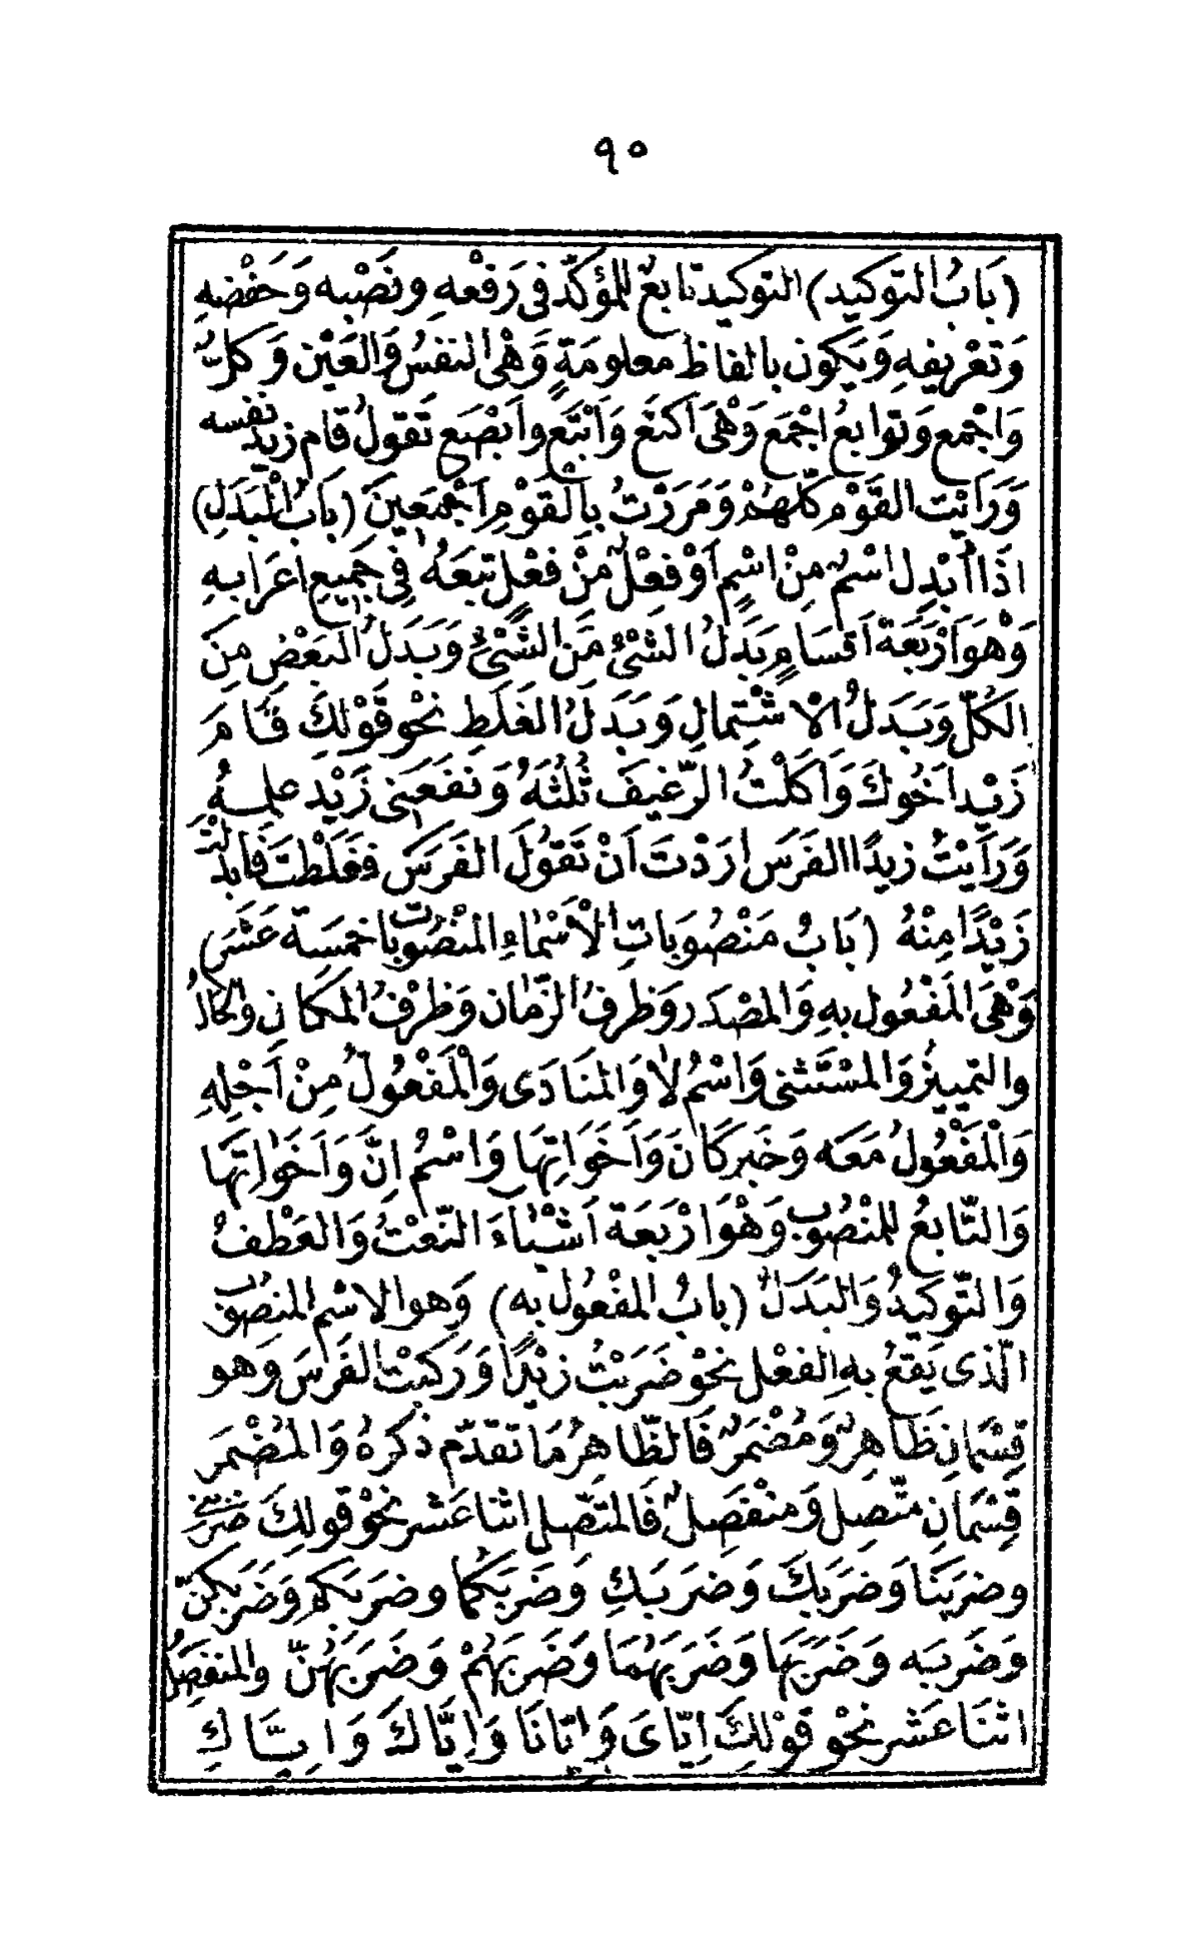 ٩٥
(بَابُ التوكيد) التوكيد تابعٌ للمؤكَّد فى رَفْعهِ ونَصْبه وَخَفْضهِ
وَتعْريفهِ وَيَكون بالفاظ معلومَةٍ وَهْىَ النفسُ وَالعَيْن وَكلٌّ
وَاجْمع وَتوابعُ اجْمَع وَهْىَ اَكتَع وَاَبْتَع وابْصَع تَقولُ قام زيدٌ نفسه
وَرَايْت القَوْمَ كلّهُمْ وَمَرَرْتُ بِالْقَوْمِ اَجْمَعِينَ (بَابُ الْبَدَلِ)
اذَا اُبْدِل اسْمٌ مِنْ اسْمٍ اَوْ فِعْلٌ مِنْ فعْلٍ تبعَهُ فِى جَمِيعِ اعْرَابهِ
وَهْوَ اَرْبَعَة اَقسَامٍ بَدَلُ الشىْءُ مَن الشَّىْءِ وَبَدَلُ البَعْضِ مِنَ
الكُلّ وَبَدَلُ الاشْتِمالِ وَبَدَلُ الغَلَطِ نحْو قَوْلكَ قَامَ
زَيْد اَخُوكَ وَاَكَلْتُ الرّغيفَ ثُلُثَهُ وَنفَعَنى زَيْد علمهُ
وَرَاَيْتُ زيدًا الفَرَس ارَدْتَ اَنْ تَقُولَ الفَرَسَ فغَلَطْتَ فَابدلْتَ
زَيْدًا مِنْهُ (بَابُ مَنْصُوبَاتِ الْاَسْمٰاءِ المنْصُوباتُ خمسَة عَشَرَ)
وَهْىَ المَفْعُول بهِ وَالمصْدَر وَظرفُ الزّمان وَظرْفُ المَكان والحالُ
والتمييزُ وَالمسْتَثنى وَاسْمُ لا وَالمنَادَى وَالْمَفْعُولُ مِنْ اَجْلِهِ
وَالْمَفْعُولُ مَعَه وَخَبر كَانَ وَاَخَوَاتِهَا وَاسْمُ اِنَّ وَاَخَوٰاتِهَا
وَالتّابعُ للمنْصُوب وَهْوَ ارْبَعَة اَشْيٰاءَ النّعْتُ وَالعَطْفُ
وَالتّوكيدُ وَالبَدَلُ (بابُ المفْعُول به) وَهو الاسْم المنصُوب
الّذى يَقعُ بهِ الفعْل نحْو ضَرَبْتُ زيْدًا وَرَكبْت الفَرَسَ وَهو
قِسْمَانِ ظَاهِرٌ وَمُضْمَرٌ فَالظّاهِرُ مَا تقدّم ذكرهُ وَالمُضْمَر
قِسْمَانِ متّصِل وَمنْفَصِلٌ فَالمتّصل اثنا عَشر نحْو قولكَ ضَرَبنى
وضرَبَنَا وَضرَبَكَ وَضرَبَكِ وَضرَبَكُما وضرَبَكم وَضَرَبَكنّ
وَضَربَه وَضَرَبَها وَضَرَبَهُمَا وَضَربَهُمْ وَضَرَبَهُنّ والمنفَصِلُ
اثنَا عَشر نحْو قوْلكَ اِيّاىَ وَاِيّانَا وَاِيّاكَ وَاِيّاكِ